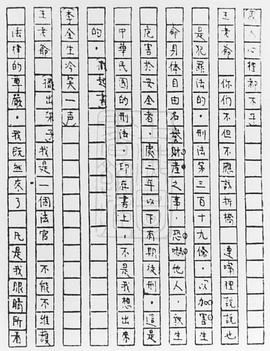 人心裡都不
王老爺 你們不但不應該拆橋 連嘴裡說說也
是犯罪法的，刑法第三百十九條，以加害生
命身體自由名譽財產之事，恐嚇他人，致生
危害於安全者，處二年以下有期徒刑。這是
中華民國的刑法，印在書上，不是我想出來
的。
李金生冷笑一声
王老爺 擺出架子 我是一個法官 不能不維護
法律的尊嚴。我既然來了 凡是我眼睛所看